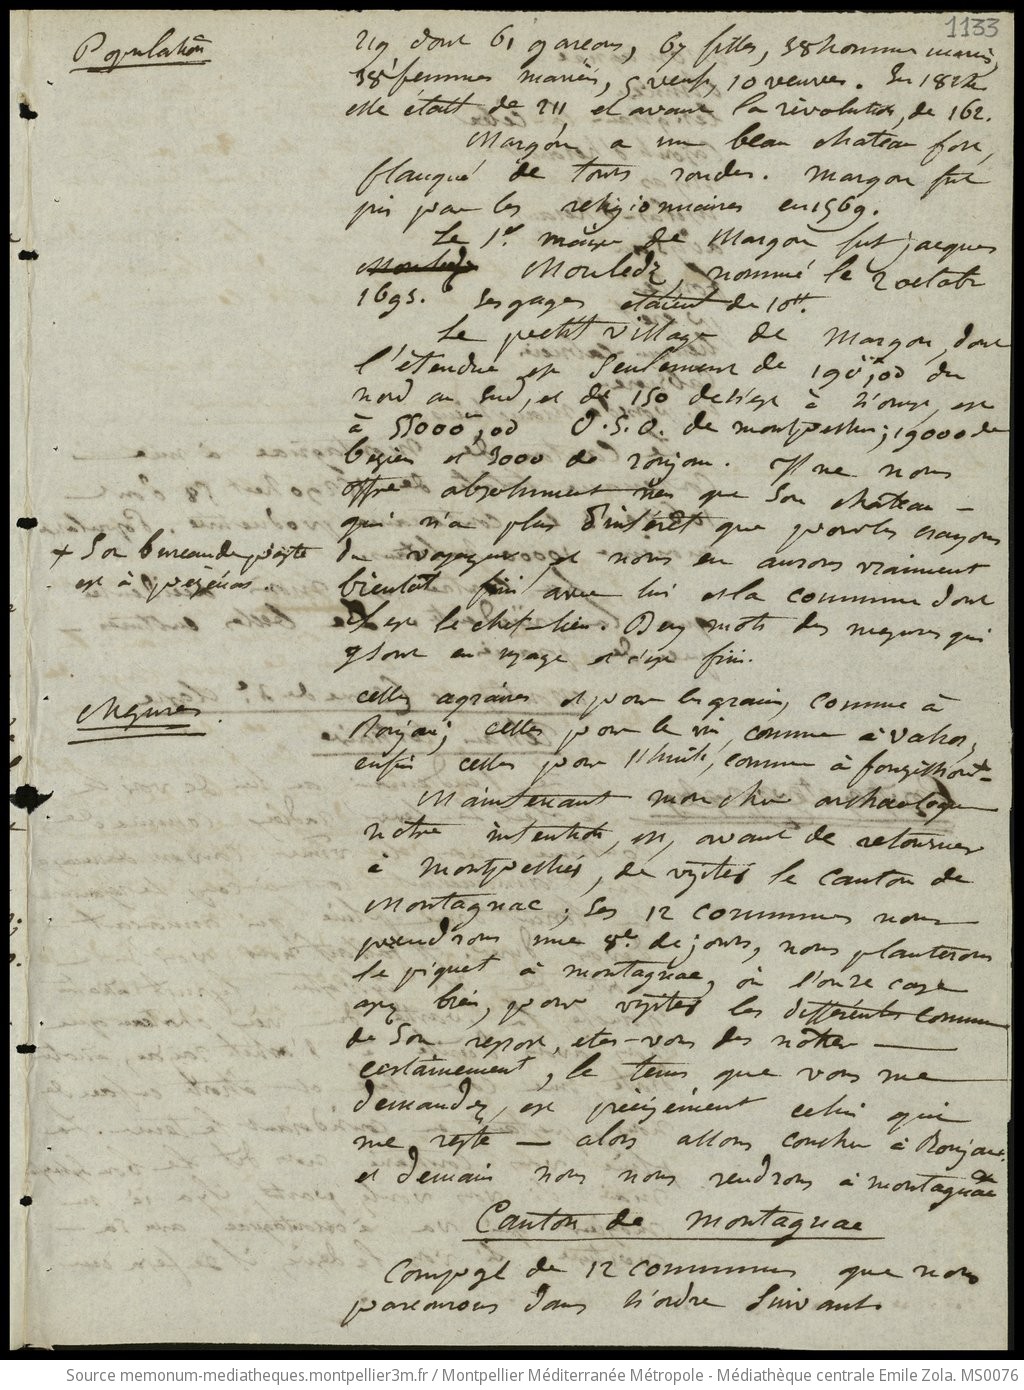 1133
Population
219 dont 61 garcons, 67 filles, 38 hommes mariés,
38 femmes mariées, 5 veufs, 10 veuves. En 18
elle était de 211, et avant la révolution, de 162.
Margon a un beau chateau fort,
flanqué de tours rondes. Margon fut
pris par les religionnaires en 1569.
Le 1er. maire de Margon fut jacques
Mouledz, nommé le 2 octobr
1693. Ses gages etaient de 10tt.
Le petit village de Margon, dont
l'étendue est seulement de 190m,00 du
nord au sud, et de 150 de l'est à l'ouest, est
à 55000m,00 O.S.O. de montpellier; 19000 de
beziers et 3000 de roujan. Il ne nous
offre absolument rien que son chateau -
qui n'a plus d'intérêt que pour les crayons
+ Son bureau de poste
est à pezénas.
du voyageur et nous en aurons vraiment
bientôt fini avec lui et la commune dont
il est le chef-lieu. Deux mots des mesures qui
y sont en usage et c'est fini.
Mesures.
celles agraires et pour les grains, comme à
Roujan; celles pour le vin, comme à Valros,
enfin celles pour l'huile, comme à fouzilhon -
Maintenant mon cher archæologue
notre intention, est, avant de retourner
à Montpellier, de visiter le Canton de
Montagnac; Ses 12 communes nous
prendrons une 8e. de jours, nous planterons
le piquet à montagnac, où l'on se case
assez bien, pour visiter les différentes commune
de son ressort, etes-vous des notres —
certainement, le tems que vous me
demandez, est précisément celui qui
me reste — alors allons coucher à Roujan.
et demain nous nous rendrons à montagnac
Canton de Montagnac
Composé de 12 communes que nous
parcourons dans l'ordre suivant
Source memonum-mediatheques.montpellier3m.fr / Montpellier Méditerranée Métropole - Médiathèque centrale Emile Zola. MS0076